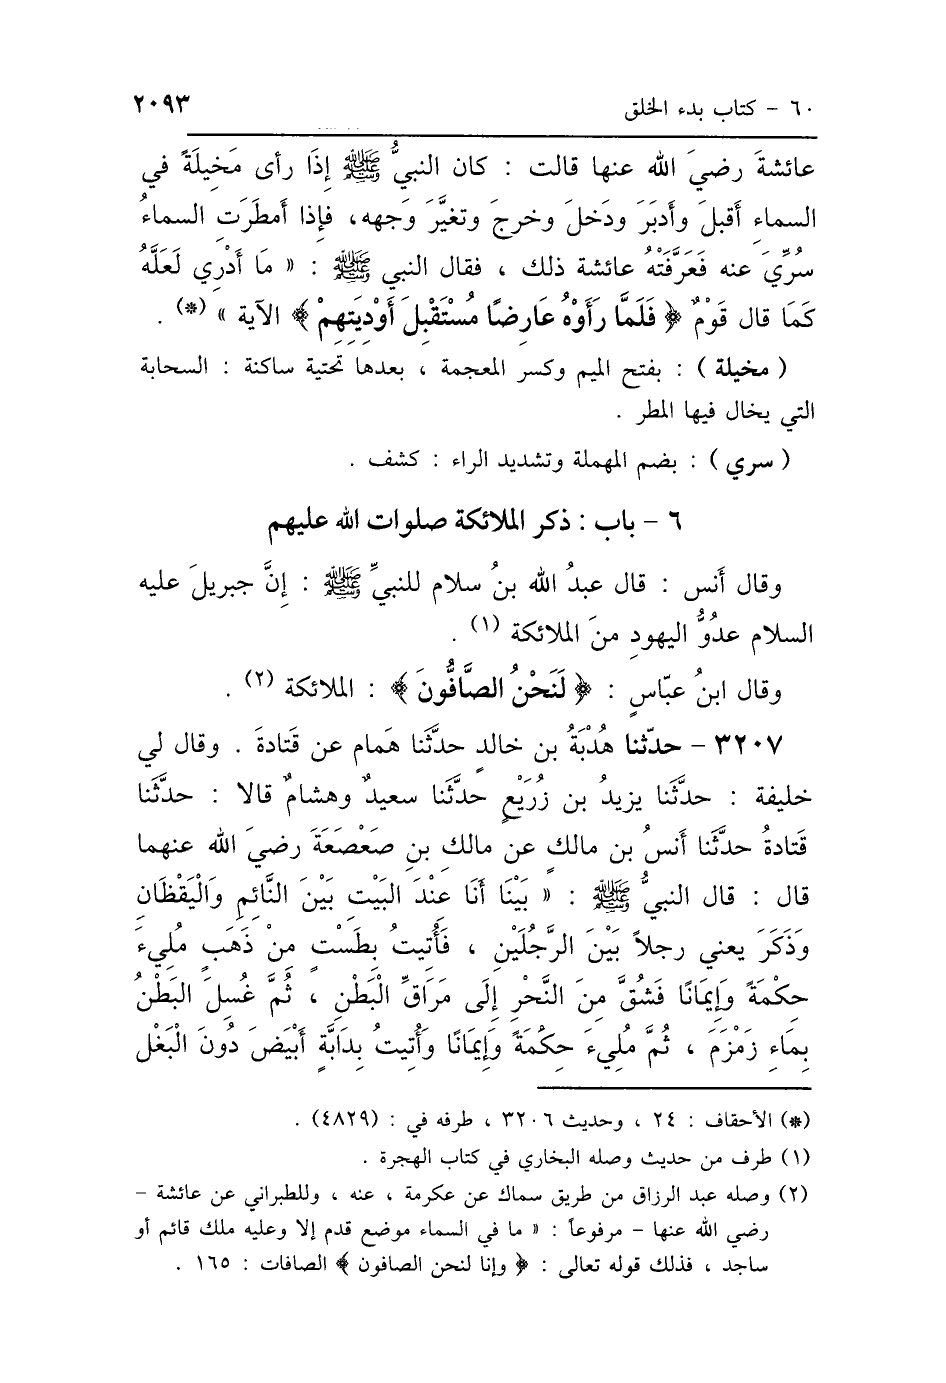 ٦٠ - كتاب بدء الخلق ٢٠٩٣
عائشةَ رضيَ الله عنها قالت : كان النبيُّ ﷺ إذَا رأى مَخِيلَةً في
السماء أقبلَ وأدبَرَ ودَخلَ وخرجَ وتغيَّرَ وَجهه، فإذا أمطَرَتِ السماءُ
سُرِّيَ عنه فَعَرَّفَتْهُ عائشة ذلك ، فقال النبي ﷺ : « مَا أدْرِي لَعَلَّهُ
كَمَا قال قَوْمٌ ﴿ فَلَمَّا رَأَوْهُ عَارِضًا مُسْتَقْبِلَ أَوْدِيَتِهِمْ ﴾ الآية » (*) .
( مخيلة ) : بفتح الميم وكسر المعجمة ، بعدها تحتية ساكنة : السحابة
التي يخال فيها المطر .
( سري ) : بضم المهملة وتشديد الراء : كشف .
٦ - باب : ذكر الملائكة صلوات الله عليهم
وقال أَنس : قال عبدُ الله بنُ سلام للنبيِّ ﷺ : إنَّ جبريلَ عليه
السلام عدُوُّ اليهودِ منَ الملائكة (١) .
وقال ابنُ عبّاسٍ : ﴿ لَنَحْنُ الصَّافُّونَ ﴾ : الملائكة (٢) .
٣٢٠٧ - حدّثنا هُدْبَةُ بن خالدٍ حدَّثَنا هَمام عن قَتادةَ . وقال لي
خليفة : حدَّثَنا يزيدُ بن زُرَيْعٍ حدَّثَنا سعيدٌ وهشامٌ قالا : حدَّثَنا
قَتادةُ حدَّثَنا أَنسُ بن مالكٍ عن مالكِ بنِ صَعْصَعَةَ رضيَ الله عنهما
قال : قال النبيُّ ﷺ : « بَيْنَا أَنَا عِنْدَ البَيْتِ بَيْنَ النَّائِمِ وَالْيَقْظَانِ
وَذَكَرَ يعني رجلاً بَيْنَ الرَّجُلَيْنِ ، فَأُتِيتُ بِطَسْتٍ مِنْ ذَهَبٍ مُلِيءَ
حِكْمَةً وَإِيمَانًا فَشُقَّ مِنَ النَّحْرِ إلَى مَرَاقِّ الْبَطْنِ ، ثُمَّ غُسِلَ البَطْنُ
بِمَاءِ زَمْزَمَ ، ثُمَّ مُلِيءَ حِكْمَةً وَإِيمَانًا وَأُتِيتُ بِدَابَّةٍ أَبْيَضَ دُونَ الْبَغْلِ
(*) الأحقاف : ٢٤ ، وحديث ٣٢٠٦ ، طرفه في : (٤٨٢٩) .
(١) طرف من حديث وصله البخاري في كتاب الهجرة .
(٢) وصله عبد الرزاق من طريق سماك عن عكرمة ، عنه ، وللطبراني عن عائشة -
رضي الله عنها - مرفوعاً : « ما في السماء موضع قدم إلا وعليه ملك قائم أو
ساجد ، فذلك قوله تعالى : ﴿ وإنا لنحن الصافون ﴾ الصافات : ١٦٥ .